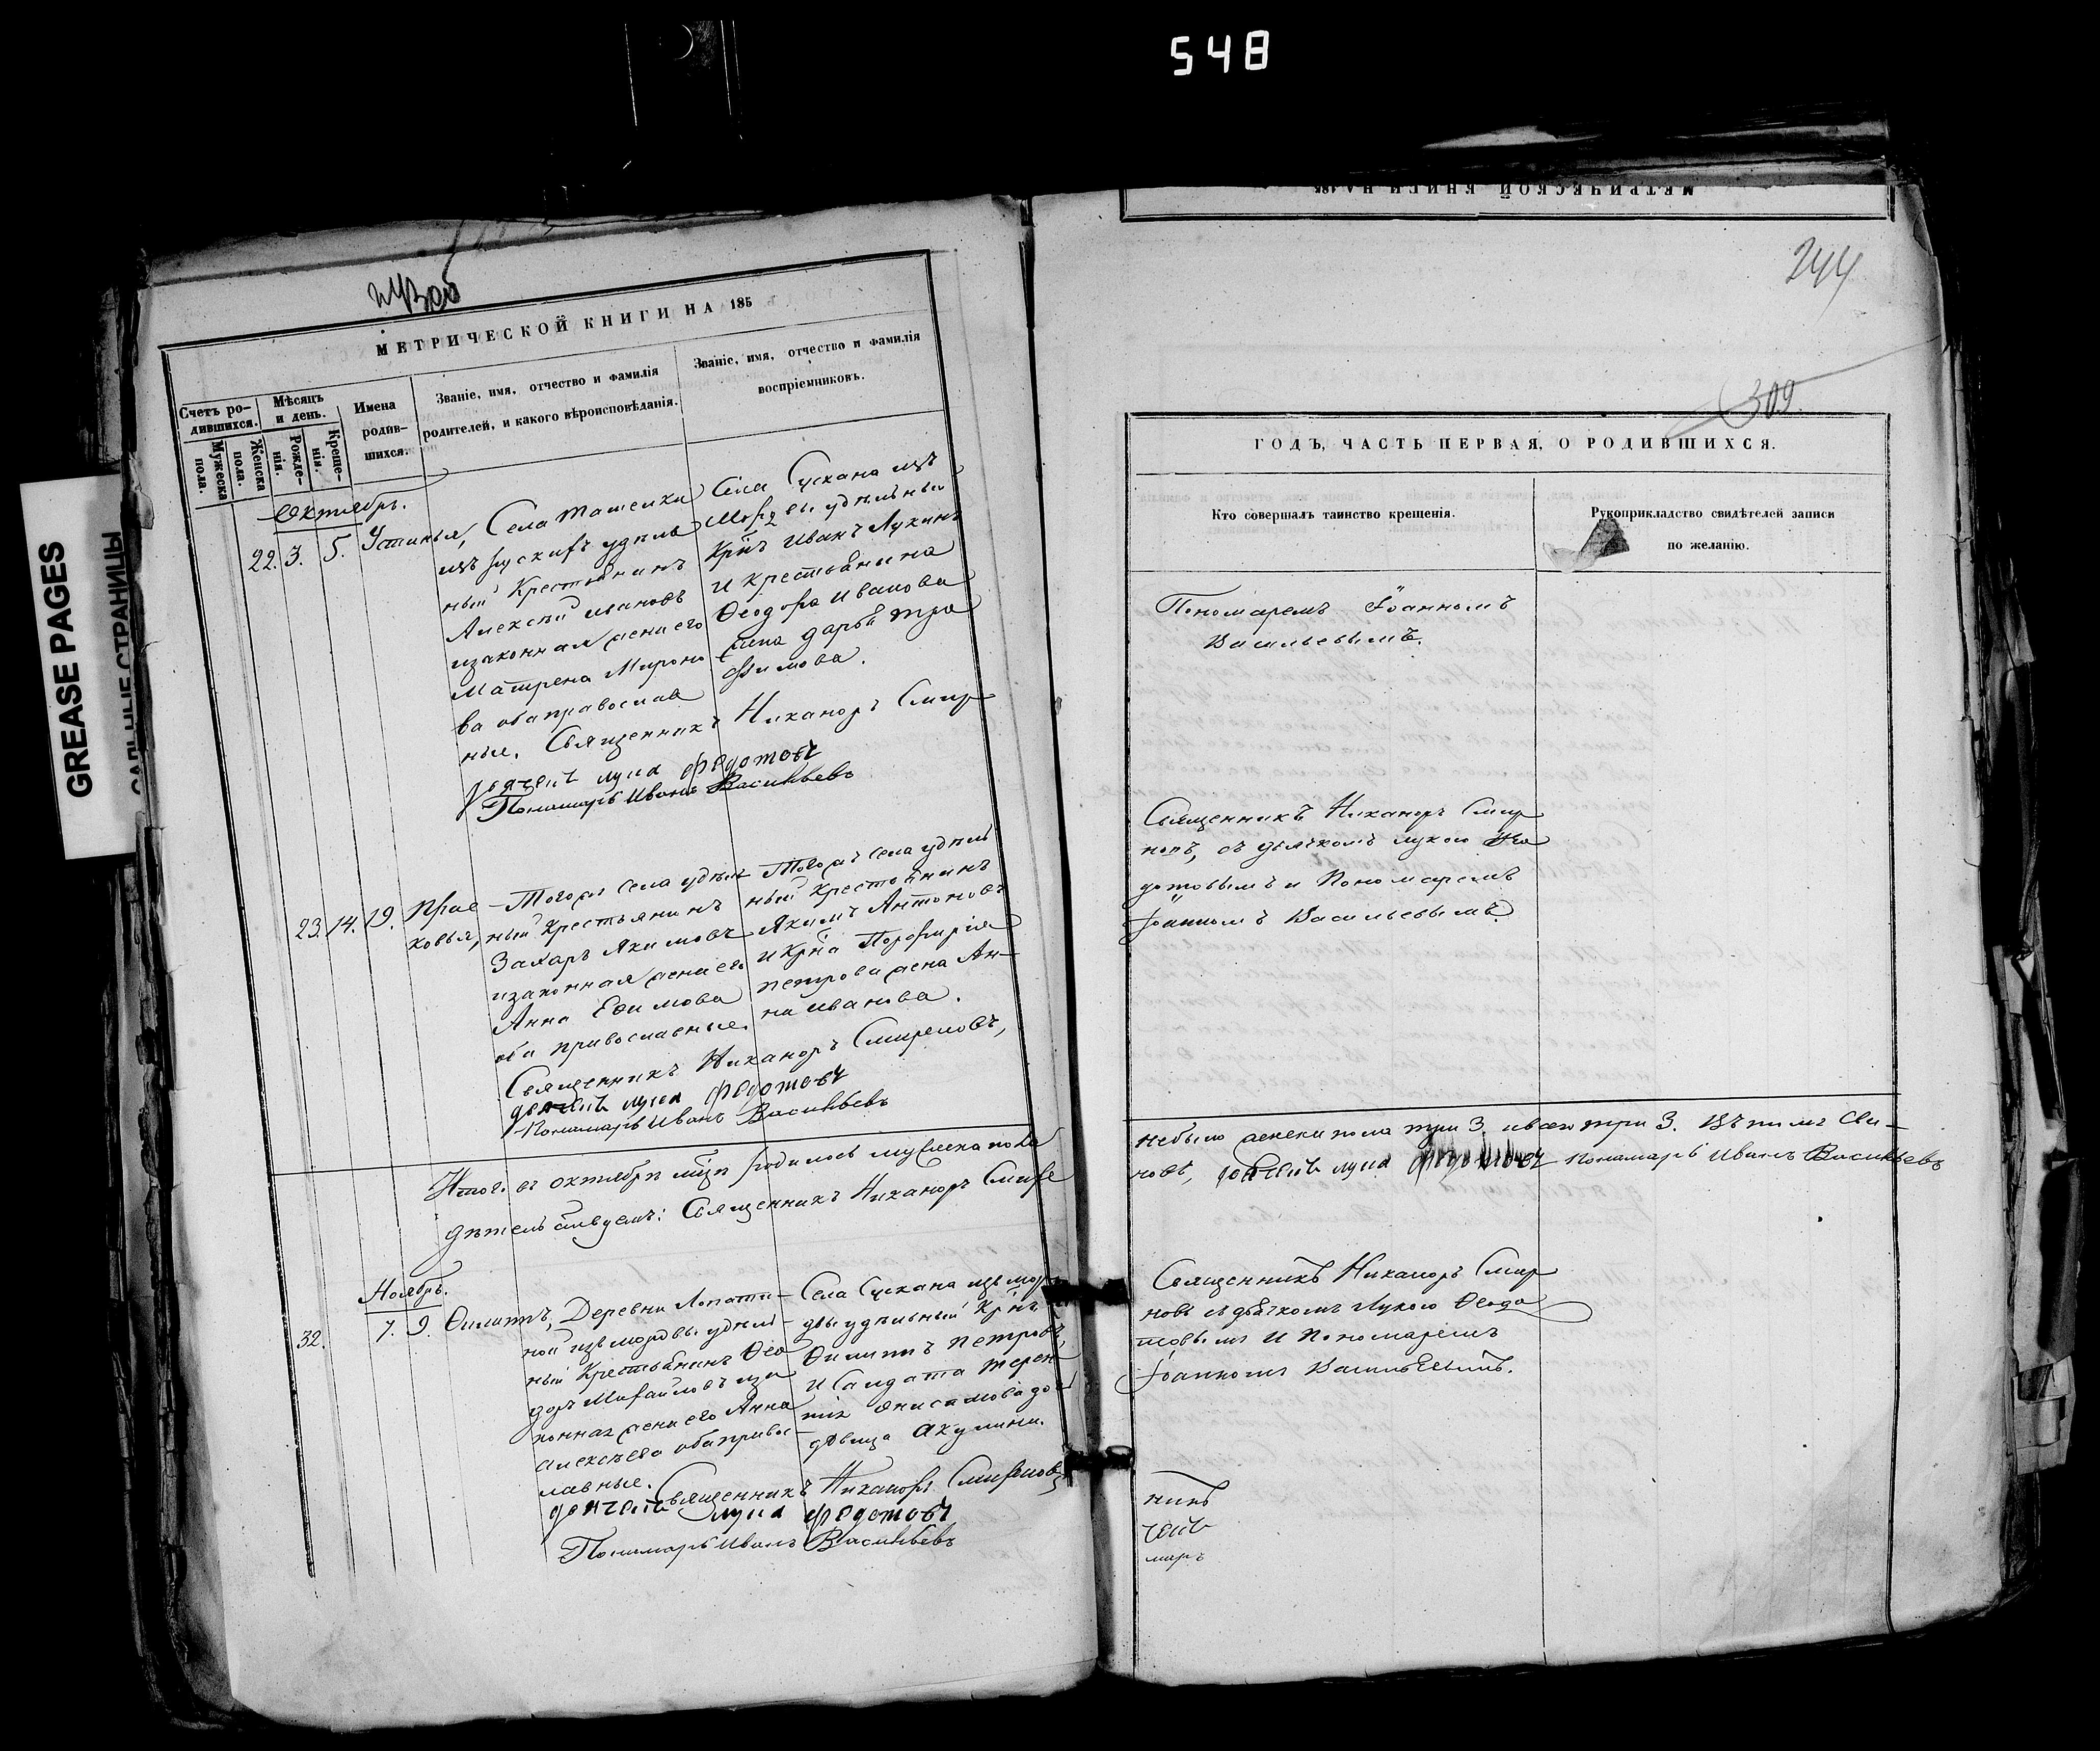 548
GREASE PAGES
САЛЬНЫЕ СТРАНИЦЫ
МЕТРИЧЕСКОЙ КНИГИ НА 185
Счетъ ро-
дившихся.
Мужеска пола.
Женска пола.
Мѣсяцъ и день.
Рожде-
нія.
Креще-
нія.
Имена
родив-
шихся.
Званіе, имя, отчество и фамилія
родителей, и какого вѣроисповѣданія.
Званіе, имя, отчество и фамилія
воспріемниковъ.
Октябрь.
22. 3. 5. Устинья,
Села Ташелки
изъ рускихъ удѣль
ный Крестьянинъ
Алексѣй Ивановъ
и законная жена его
Матрена Мироно
ва оба православ
ные.
Села Сускана изъ
Мордвы удѣльный
Крнъ Иванъ Лукинъ
и крестьянина
Ѳеодора Иванова
жена Дарья Тро
фимова.
Священникъ Никаноръ Смир
дьячекъ лука федотовъ
Пономарь Иванъ Васильевъ
23. 14. 19. Прас
ковья,
Тогожъ села удѣль
ный Крестьянинъ
Захаръ Якимовъ
и законная жена его
Анна Ефимова
оба православные.
Тогожъ села удѣль
ный Крестьянинъ
Якимъ Антоновъ
и Крна Порфирія
Петрова жена Ан-
на Иванова.
Священникъ Никаноръ Смирновъ,
дьячекъ лука федотовъ
Пономарь Иванъ Васильевъ
Итого въ октябрѣ мцѣ родилось мужеска пола
дѣтель слѣдуетъ: Священникъ Никаноръ Смирн
Ноябрь.
32. 7. 9. Филиппъ,
Деревни Лопати-
ной изъ мордвы удѣль-
ный Крестьянинъ Ѳео
доръ Михайловъ и за
конная жена его Анна
Алексѣева оба правос
лавные.
Села Сускана изъ мор
двы удѣльный Крнъ
Филиппъ Петровъ,
и Салдата Терен
тія Анисимова до
дѣвица Акулина.
Священникъ Никаноръ Смирновъ
дьячекъ лука федотовъ
Пономарь Иванъ Васильевъ
МЕТРИЧЕСКОЙ КНИГИ НА 185
244
309
ГОДЪ, ЧАСТЬ ПЕРВАЯ, О РОДИВШИХСЯ.
Кто совершалъ таинство крещенія.
Рукоприкладство свидѣтелей записи
по желанію.
Пономаремъ Іоанномъ
Васильевымъ.
Священникъ Никаноръ Смир
новъ, съ дьячкомъ лукою Ѳео
дотовымъ и Пономаремъ
Іоанномъ Васильевымъ.
небыло женска пола три 3. и всего три 3. Въ томъ сви-
новъ, дьячекъ лука федотовъ Пономарь Иванъ Васильевъ
Священникъ Никаноръ Смир
новъ съ дьячкомъ Лукою Ѳеодо
товымъ и Пономаремъ
Іоанномъ Васильевымъ.
никъ
чекъ
марь